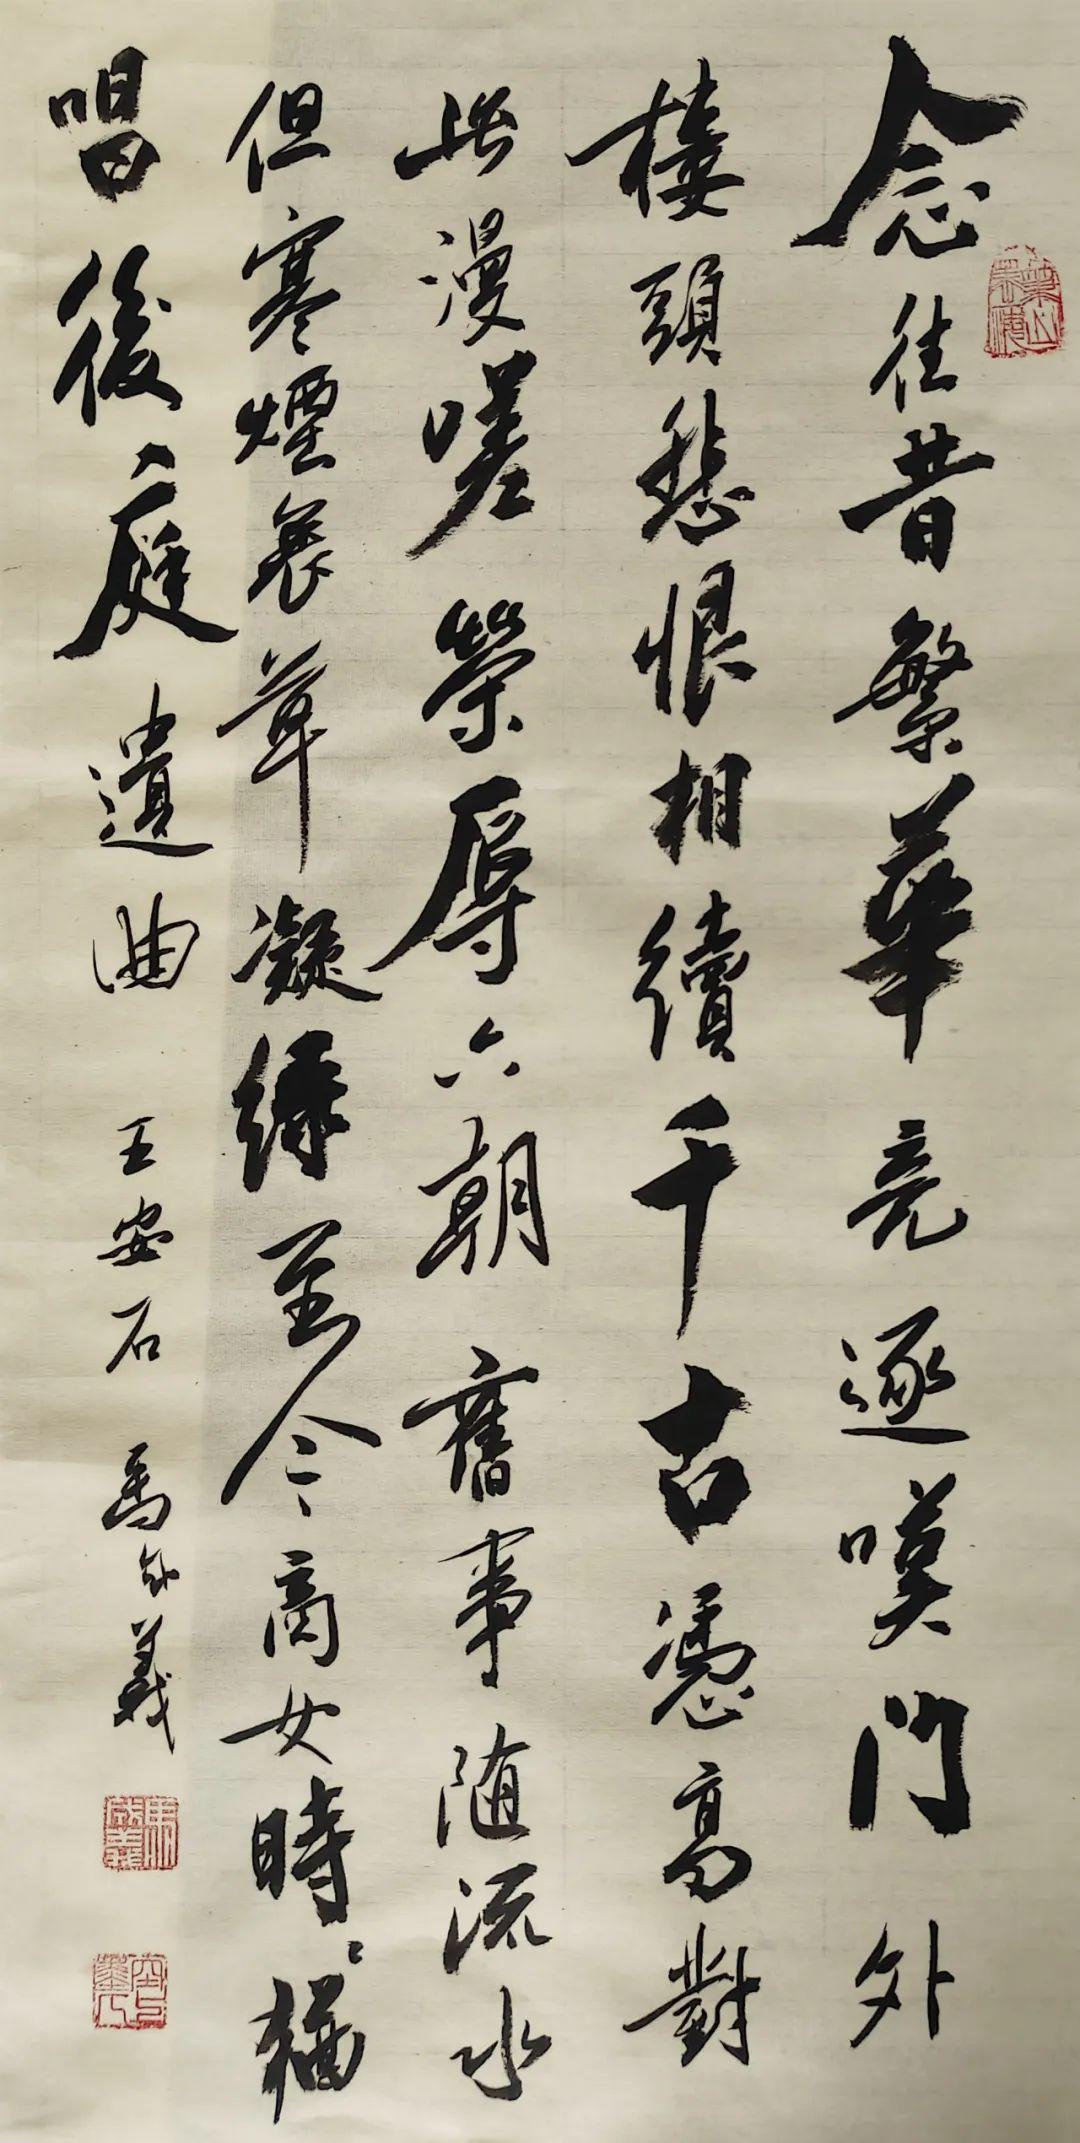 念往昔繁華竞逐嘆門外
樓頭悲恨相續千古憑高對
此漫嗟榮辱六朝舊事随流水
但寒煙衰草凝绿至今商女時〻猶
唱後庭遺曲 王安石 馬啟義